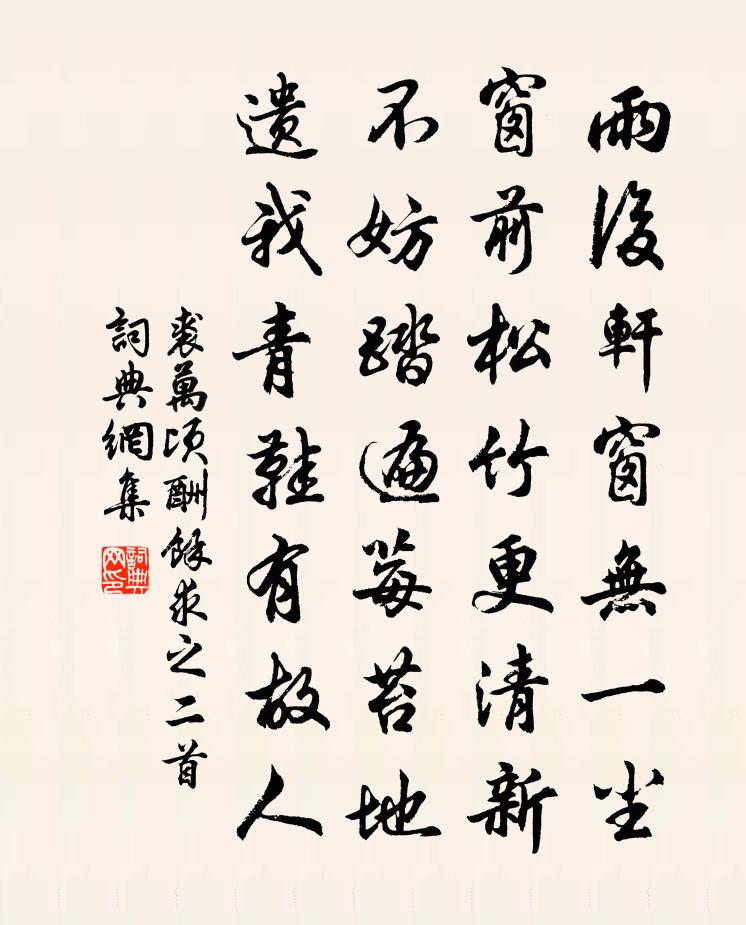 雨後軒窗無一尘
窗前松竹更清新
不妨踏遍莓苔地
遺我青鞋有故人
裘萬頃酬餘求之二首
詞典網集
詞典網印